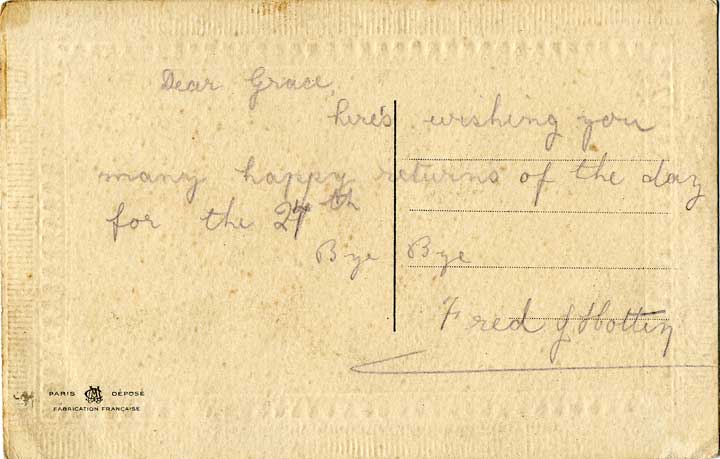 Dear Grace,
here's wishing you
many happy returns of the day
for the 27th
Bye Bye
Fred
PARIS DÉPOSÉ
FABRICATION FRANÇAISE